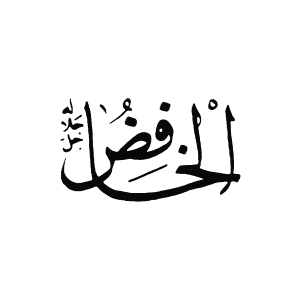 الخافضُ
جل جلاله